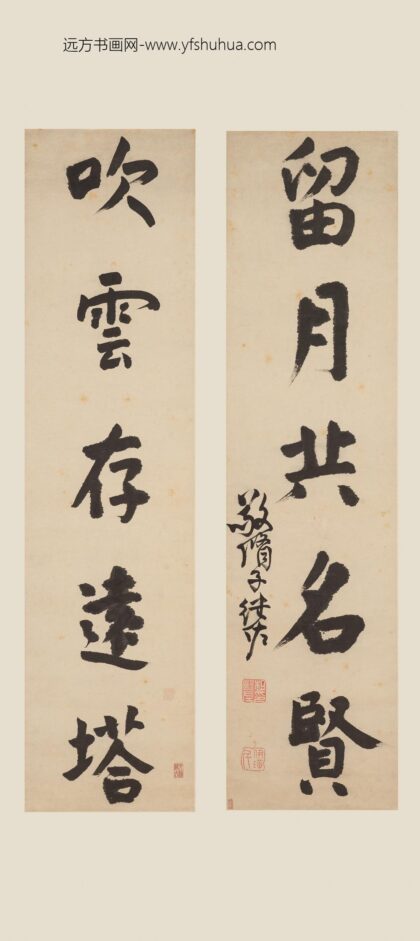 远方书画网-www.yfshuhua.com
留月共名賢
吹雲存遠塔